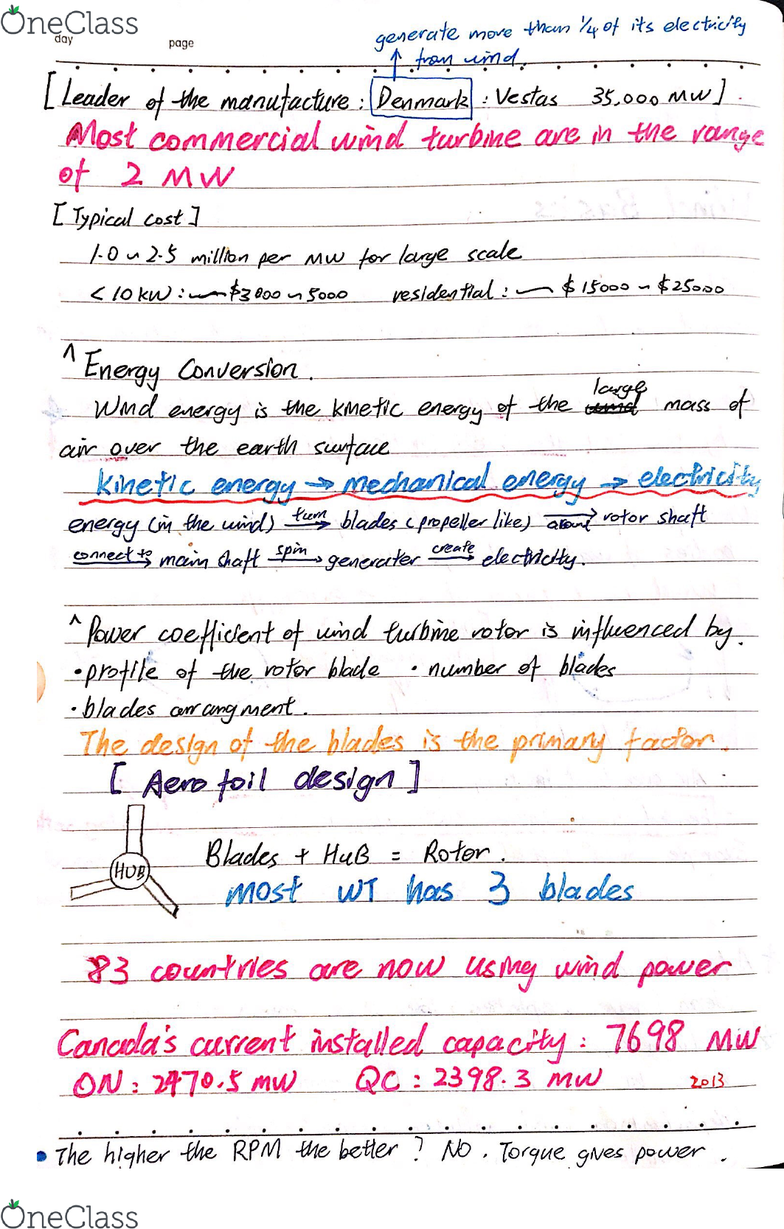 OneClass
day
page
generate more than 1/4 of its electricity
from wind.
[Leader of the manufacture : Denmark : Vestas 35,000 MW].
Most commercial wind turbine are in the range
of 2 MW
[Typical cost]
1.0 ~ 2.5 million per MW for large scale
< 10 kW : ~ $3000 ~ 5000 residential : ~ $15000 ~ $25000
^ Energy Conversion.
Wind energy is the kinetic energy of the large mass of
air over the earth surface
kinetic energy → mechanical energy → electricity
energy (in the wind) turn→ blades (propeller like) around→ rotor shaft
connect to→ main shaft spin→ generater create→ electricity.
^ Power coefficient of wind turbine rotor is influenced by.
• profile of the rotor blade • number of blades
• blades arrangment.
The design of the blades is the primary factor.
[Aerofoil design]
HUB
Blades + HuB = Rotor.
most WT has 3 blades
83 countries are now using wind power
Canada's current installed capacity : 7698 MW
ON : 2470.5 MW QC : 2398.3 MW 2013
• The higher the RPM the better ? NO. Torque gives power.
OneClass